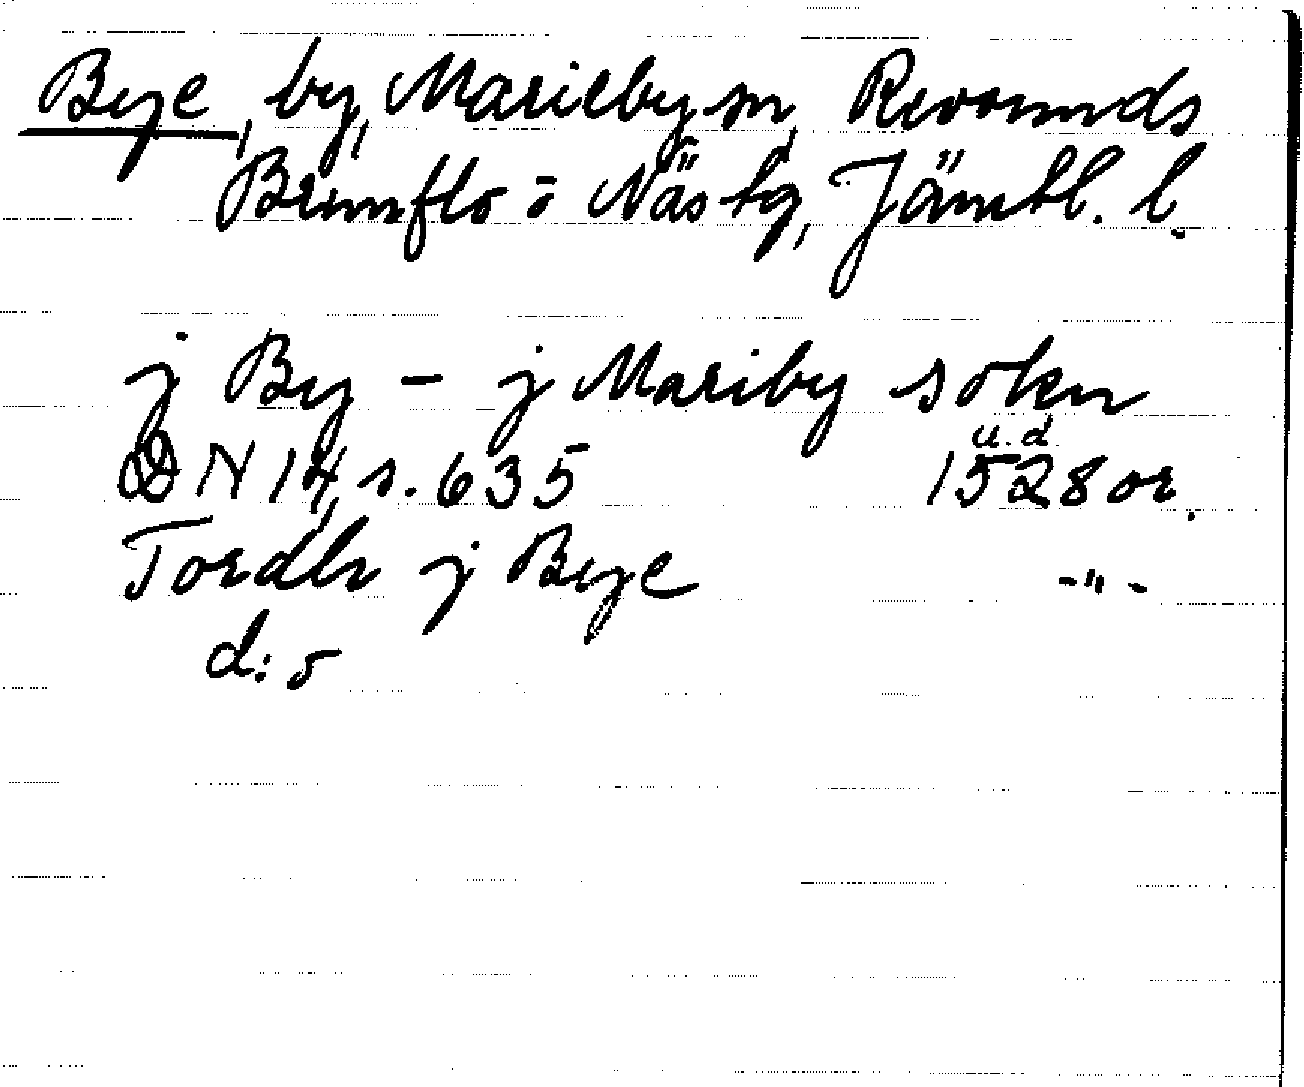 Bye, by, Marieby sn, Revsunds
Brunflo o Näs tg, Jämtl. l.
j By - j Mariby sokn
DN 14, s. 635 u.d. 1528 or.
Tordh j Bye -"-
d:o